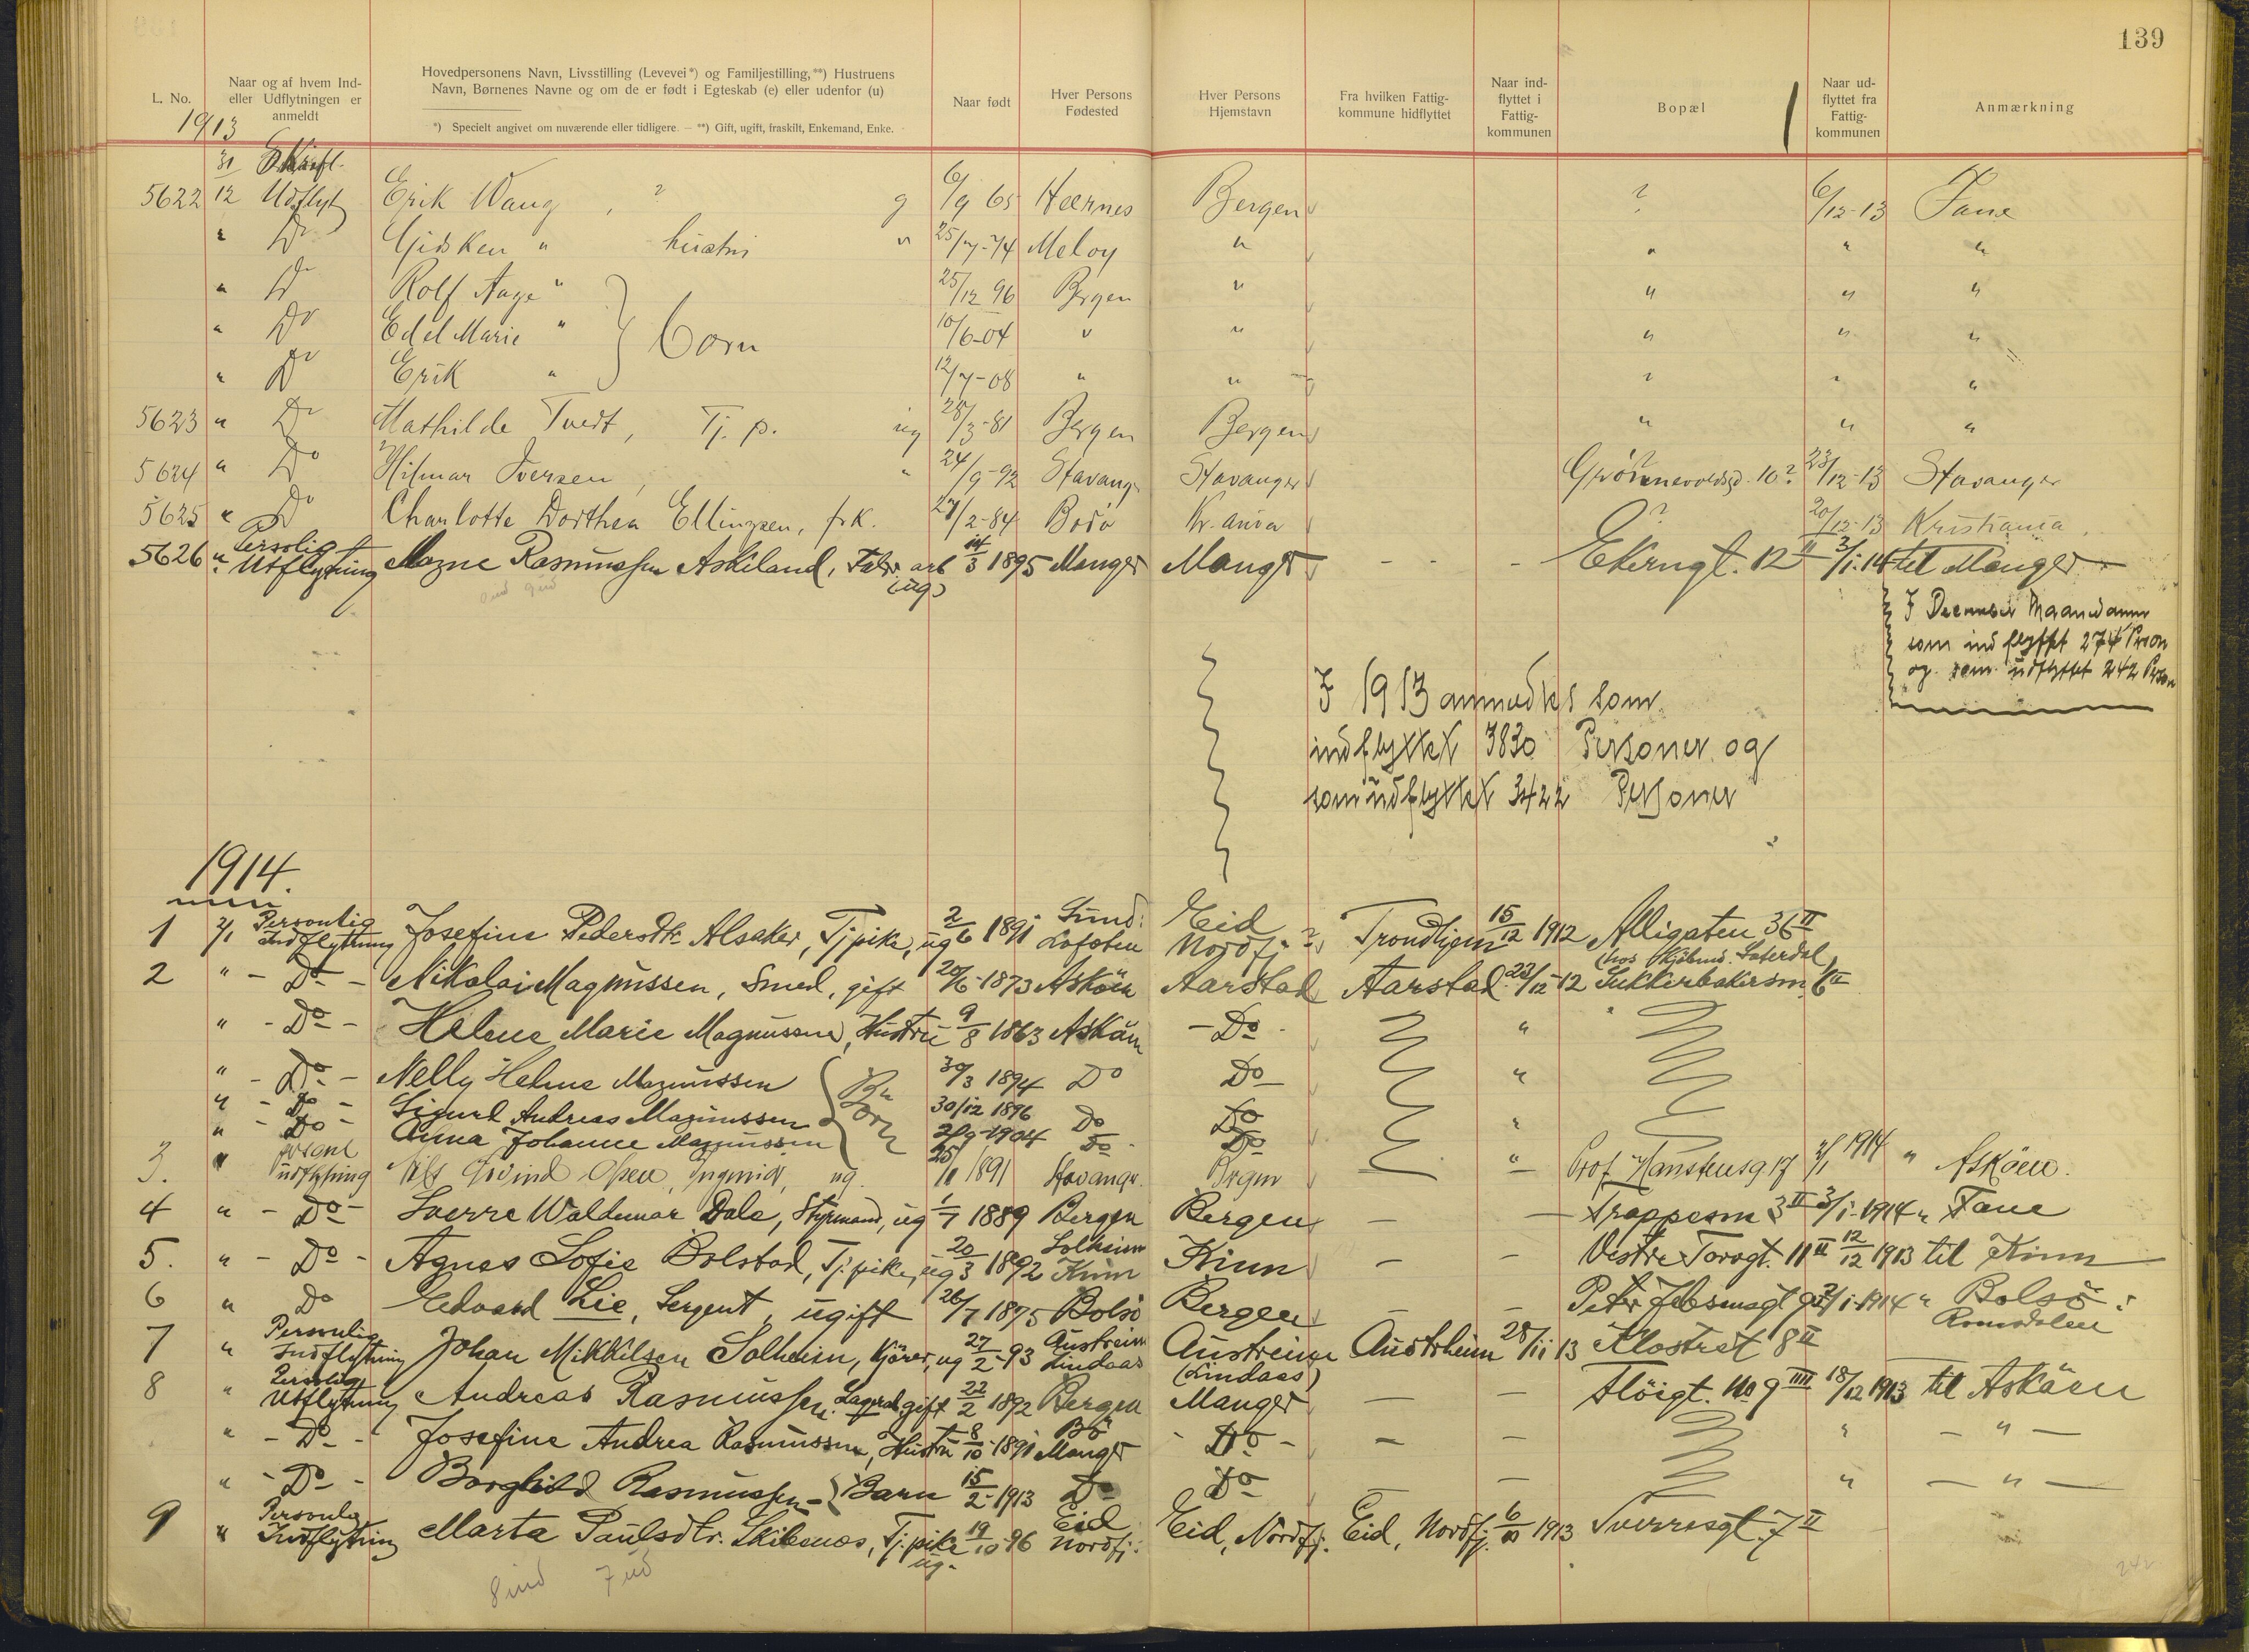 139
L. No.
Naar og af hvem Ind- eller Udflytningen er anmeldt
Hovedpersonens Navn, Livsstilling (Levevei*) og Familjestilling,**) Hustruens Navn, Børnenes Navne og om de er født i Egteskab (e) eller udenfor (u)
*) Specielt angivet om nuværende eller tidligere. — **) Gift, ugift, fraskilt, Enkemand, Enke.
Naar født
Hver Persons Fødested
Hver Persons Hjemstavn
Fra hvilken Fattig- kommune hidflyttet
Naar ind- flyttet i Fattig- kommunen
Bopæl
Naar ud- flyttet fra Fattig- kommunen
Anmærkning
1913
5622 31/12 Udflyt Erik Wang, ? g 6/9 65 Hærnes Bergen ? 6/12-13 Fane
" Do Gidsken " hustru " 25/7-74 Meloy " " " "
" Do Rolf Aage " 25/12 96 Bergen " " " "
" Do Edel Marie " } børn 10/6-04 " " " " "
" Do Erik " 12/7-08 " " " " "
5623 " Do Mathilde Tvedt, Tj. p. ug 25/3-81 Bergen Bergen " " "
5624 " Do Hilmar Iversen, " 24/9-92 Stavang. Stavanger 10? 23/12-13 Stavanger
5625 " Do Charlotte Dorthea Ellingsen, frk. 27/2-84 Bodø Kr.ania ? 20/12-13 Kristiania
5626 " Perslig Utflytning Magne Rasmussen Askeland, Fabr. arb (ug) 14/3 1895 Manger Manger - - - Ekerngt. 12 II 3/1.14 til Manger
I December Maaned anm
som ind flyttet 274 Person
og som udflyttet 242 Person
I 1913 anmeldtes som
indflyttet 3830 Personer og
som udflyttet 3422 Personer
1914.
1 2/1 Personlig Indflytning Josefine Pedersdtr Alsaker, Tj pike, ug 2/6 1891 Sund: Lofoten Eid Nordfj ? Trondhjem 15/12 1912 Alligaten 36 II
2 " - Do - Nikolai Magnussen, Smed, gift 20/6-1873 Asköen Aarstad Aarstad 23/12-12 Sukkerbakersm. 6 II
" - Do - Helene Marie Magnussen, Hustru 9/8 1863 Asköen - Do - "
" - Do - Nelly Helene Magnussen Börn 30/3 1894 Do Do "
" - Do - Sigurd Andreas Magnussen 30/12 1896 Do Do "
" - Do Anna Johanne Magnussen 1904 Do Do "
3. " udflytning Nils Eivind Olsen, Ingeniør, ug. 1891 Stavanger. Bergen Prof Hanstensg 17 2/1 1914 " Asköen.
4 " - Do - Sverre Waldemar Dale, Styrmand, ug 1/7 1889 Bergen Bergen - - Trappesm 3 II 3/1-1914 " Fane
5. " - Do - Agnes Sofie Bolstad, Tj.pike, ug 20/3 1892 Solheim Kinn Kinn - - Vestre Torvgt. 11 II 12/12 1913 til Kinn
6 " Do Edvard Lie, Sergent, ugift 26/7 1875 Bolsö Bergen - - Peter Jebsensgt 2/1-1914 " Bolsö: Romsdalen
7 " Personlig Indflytning Johan Mikkelsen Solheim, Kjörer, ug 27/2-93 Austreim Lindaas Austreim (Lindaas) Austrheim 28/11 13 Klostret 8 II
8 " Perslig Utflytning Andreas Rasmussen. Lagerarb. gift 22/2 1892 Bergen Manger - - Flöigt. No 9 IIII 18/12 1913 til Asköen
" - Do - Josefine Andrea Rasmussen, Hustru 8/10-1891 Bö Manger - Do - - - " - " -
" - Do - Borghild Rasmussen - { Barn 15/2-1913 Do Do - - " - " -
9 " Personlig Indflytning Marta Paulsdtr. Skibenes, Tj. pike ug. 19/10-96 Eid Nordfj: Eid, Nordfj. Eid, Nordfj. 6/10 1913 Sverresgt. 7 II
8 ind 7 ud
242